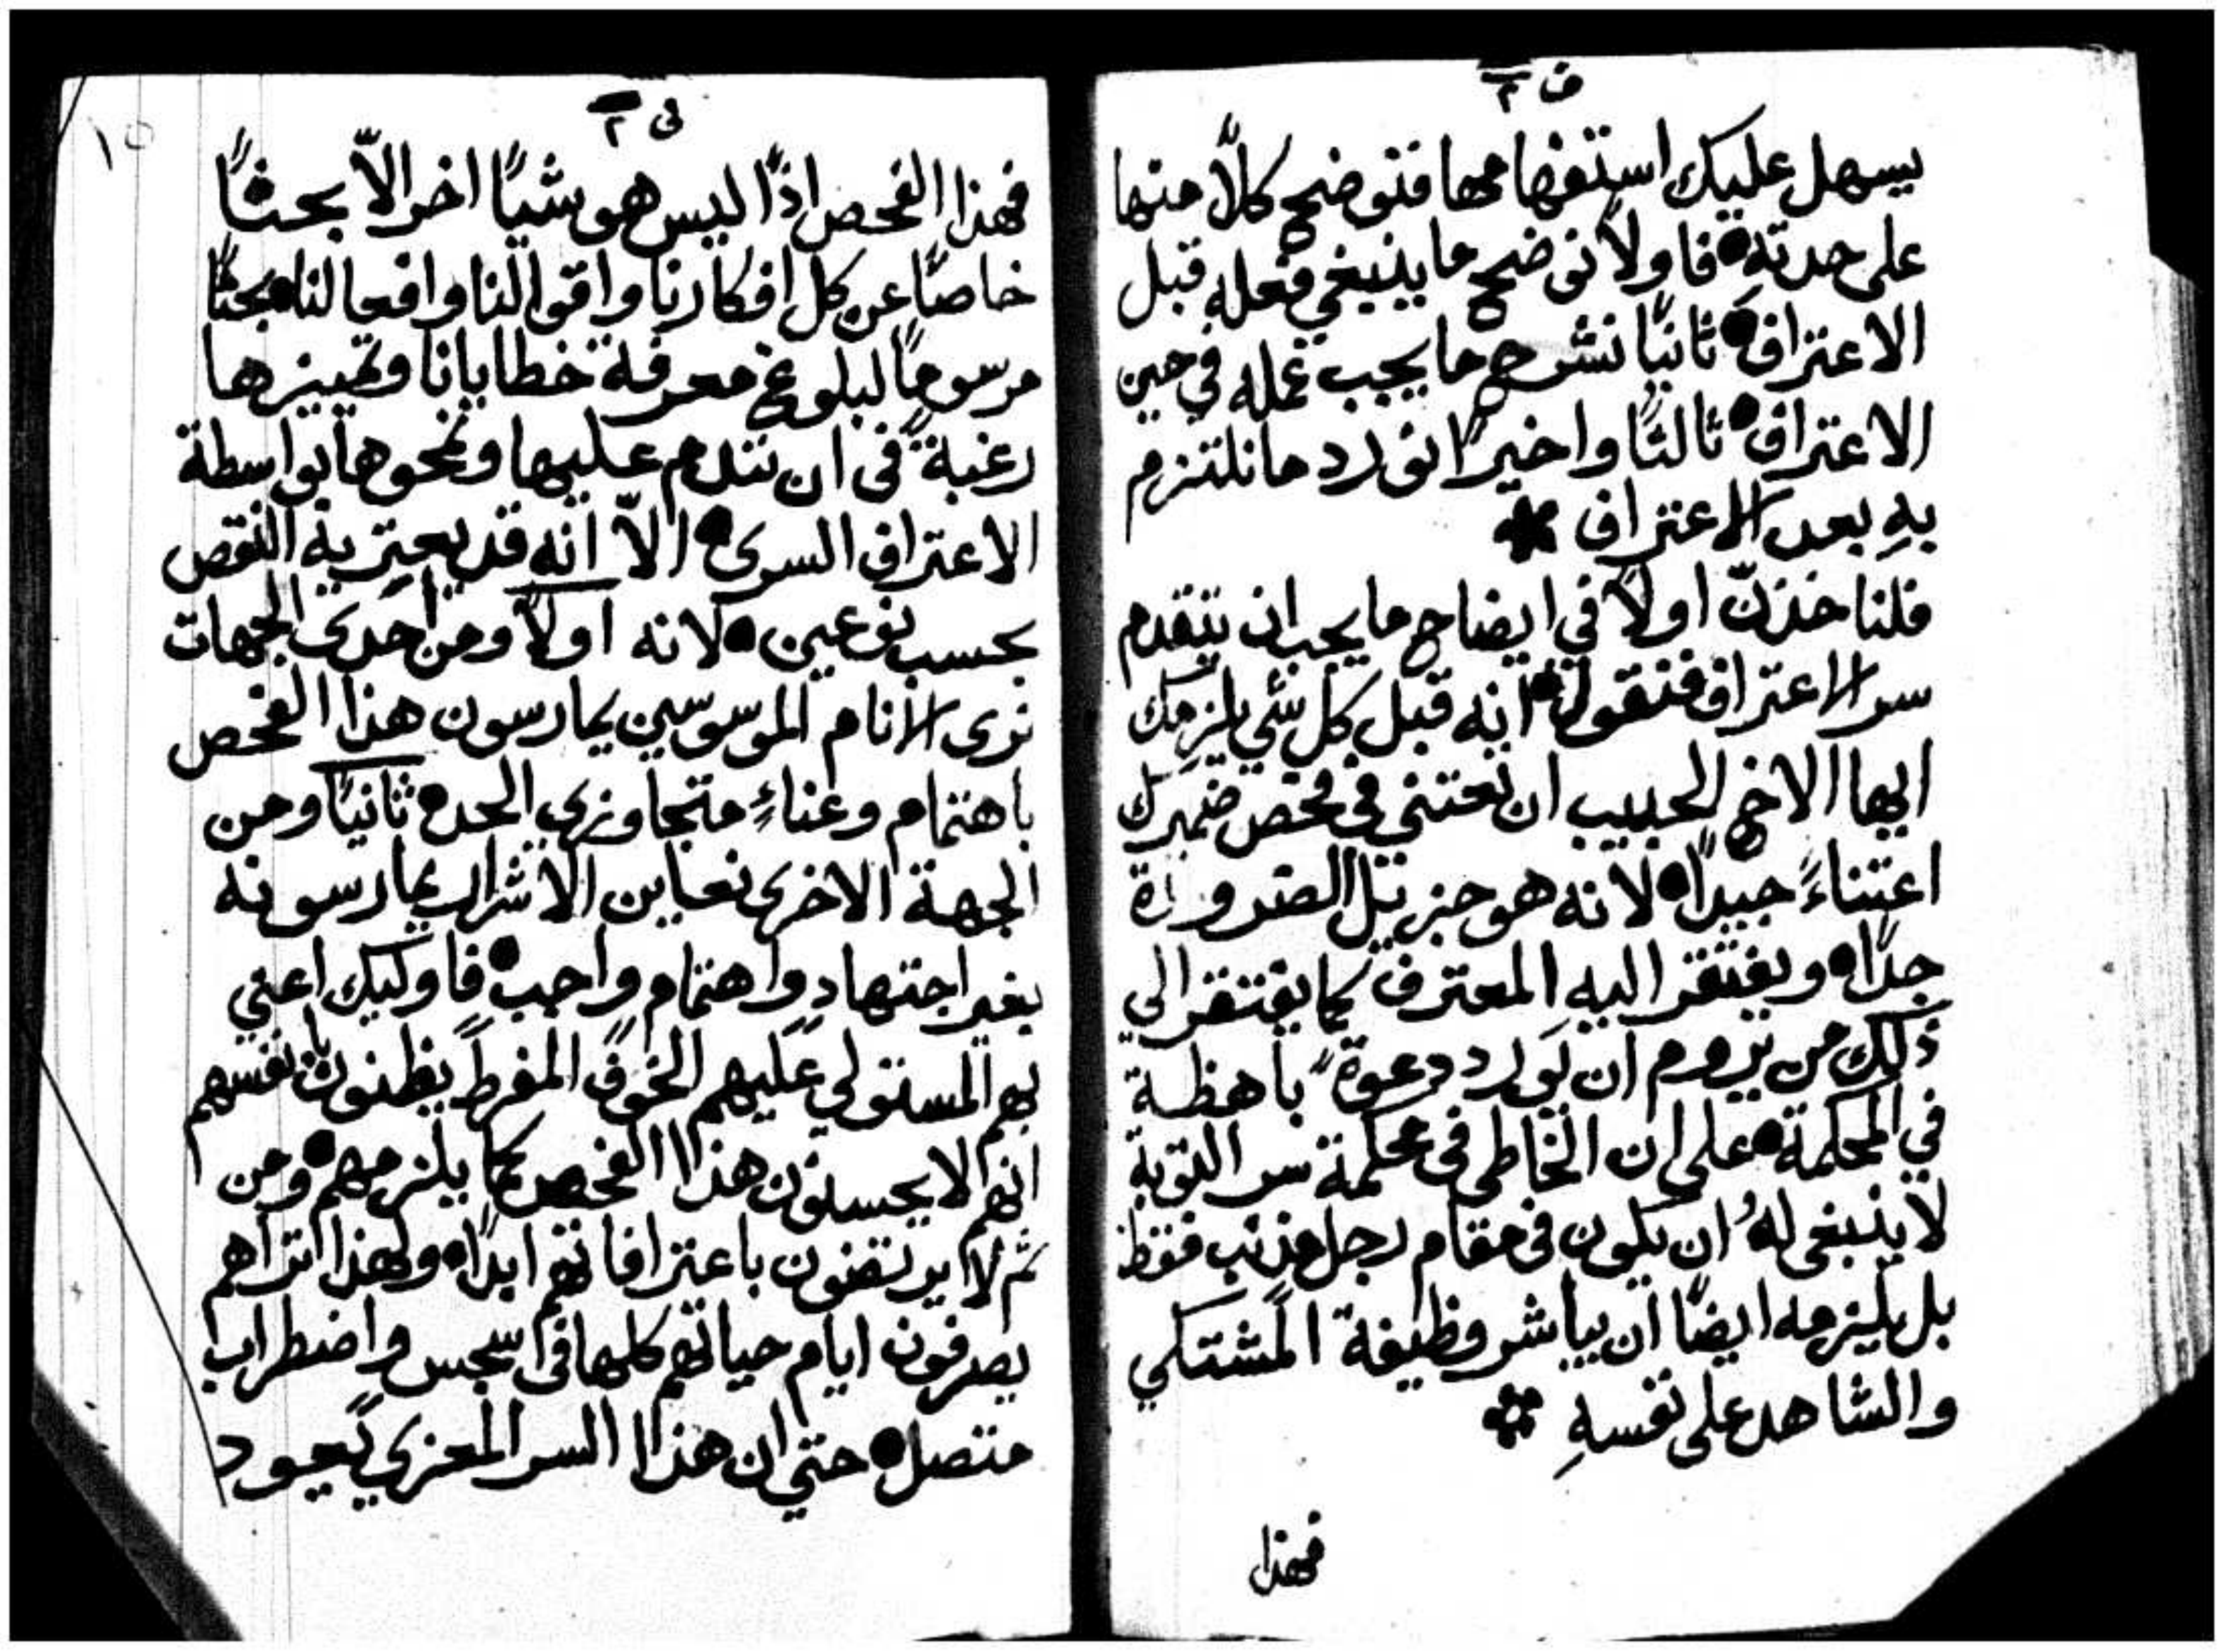 ف ٢
يسهل عليك استفهامها فنوضح كلاً منها
على حدته • فاولاً نوضح ما ينبغي فعله قبل
الاعتراف • ثانيًا نشرح ما يجب عمله في حين
الاعتراف • ثالثًا واخيرًا نورد ما نلتزم
بهِ بعد الاعتراف *
فلناخذنّ اولاً في ايضاح ما يجب ان يتقدم
سر الاعتراف فنقول • انه قبل كل شي يلزمك
ايها الاخ الحبيب ان تعتني في فحص ضميرك
اعتناءً جيدًا • لانه هو جزيل الضرورة
جدًا • ويفتقر اليهِ المعترف كما يفتقر الى
ذلك من يروم ان يورد دعوة باهظة
في المحكمة • على ان الخاطي في محكمة سر التوبة
لا ينبغي لهُ ان يكون في مقام رجل مذنب فقط
بل يلزمه ايضًا ان يباشر وظيفة المشتكي
والشاهد على نفسهِ *
فهذا
ف ٢
١٥
فهذا الفحص اذًا ليس هو شيًا اخر الاّ بحثًا
خاصًا عن كل افكارنا واقوالنا وافعالنا • بحثًا
مرسومًا لبلوغ معرفة خطايانا وتمييزها
رغبةً في ان نندم عليها ونمحوها بواسطة
الاعتراف السري • الاّ انه قد يعتريه النقص
بحسب نوعين • لانه اولاً ومن احدى الجهات
نرى الانام الموسوسين يمارسون هذا الفحص
باهتمام وعناءٍ متجاوزي الحد • ثانيًا ومن
الجهة الاخرى نعاين الاشرار يمارسونه
بغير اجتهادٍ واهتمام واجب • فاوليك اعني
بهم المستولي عليهم الخوف المفرط يظنون بانفسهم
انهم لا يحسنون هذا الفحص كما يلزمهم • ومن
ثم لا يرتضون باعترافاتهم ابدًا • ولهذا تراهم
يصرفون ايام حياتهم كلها في سجس واضطراب
متصل • حتى ان هذا السر المعزي يعود